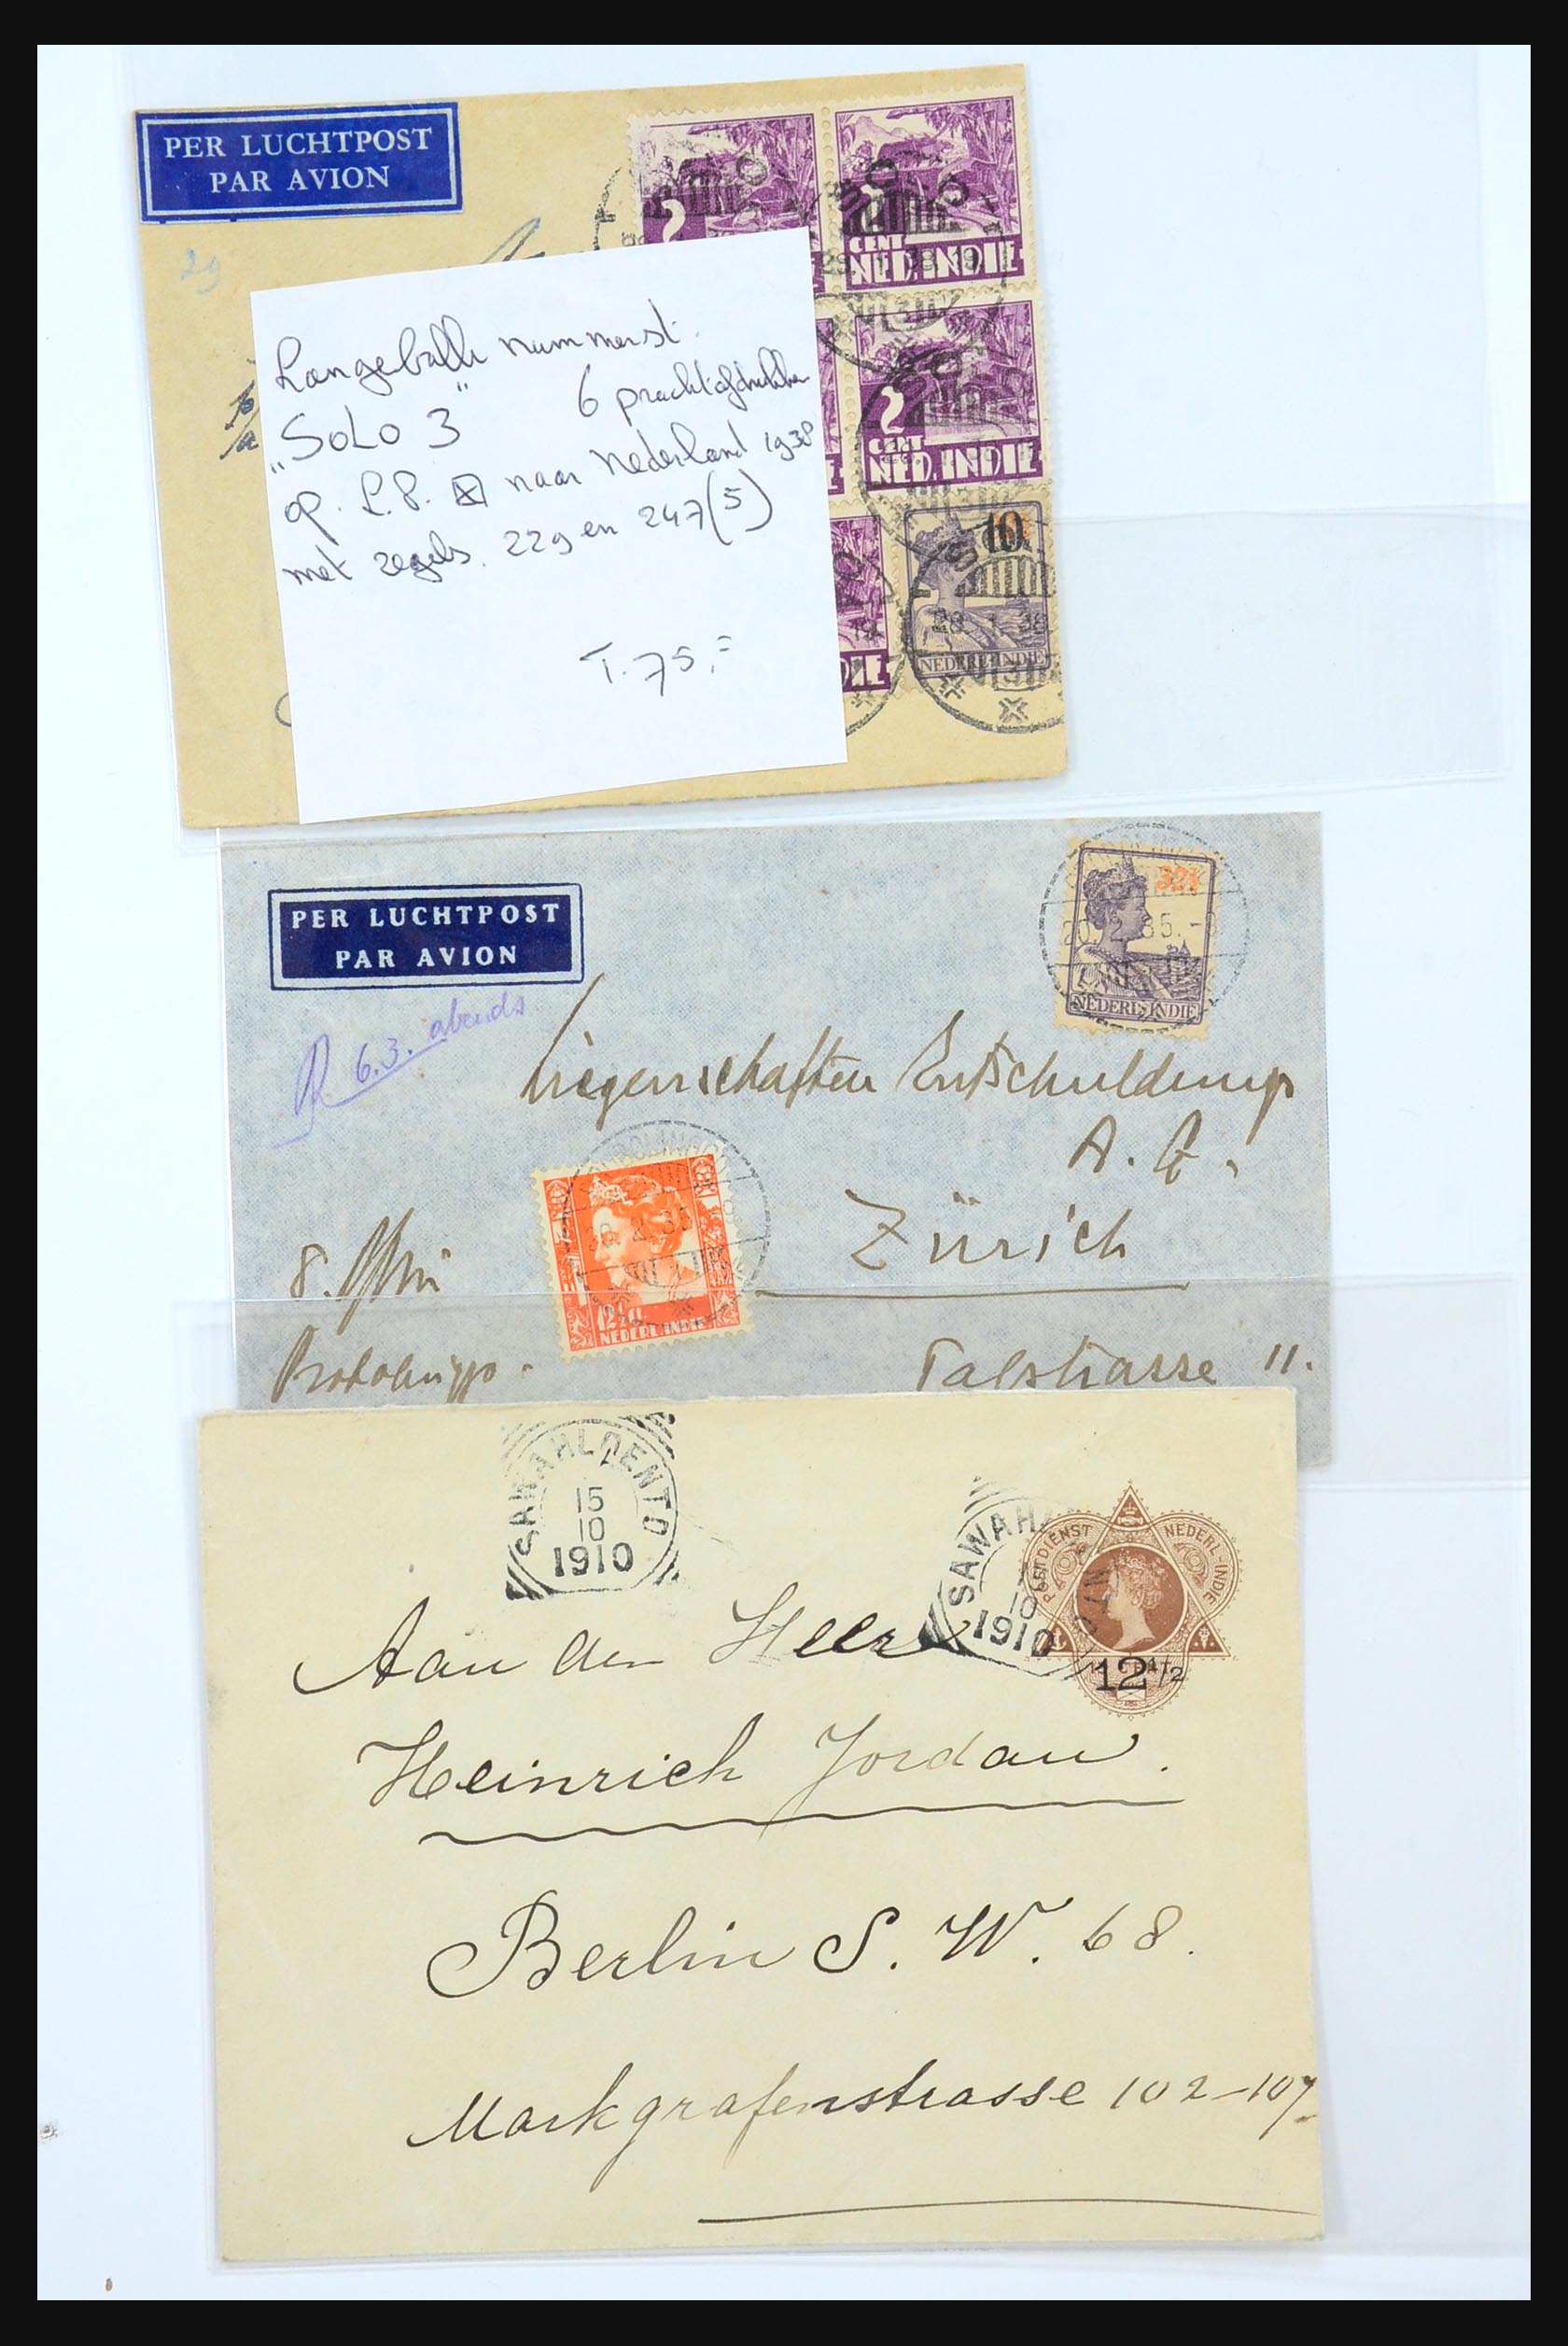 PER LUCHTPOST
PAR AVION
29
CENT
NED. INDIE
2
CENT
NED. INDIE
10
28. 1. 38
NEDERL-INDIE
Langebalk nummerst.
"SOLO 3" 6 prachtafdrukken
op L.P. naar Nederland 1938
met zegels. 229 en 247 (5)
T. 75,=
PER LUCHTPOST
PAR AVION
6.3. abends
32½
20. 2. 35.-
NEDERL-INDIE
Liegenschaften Entschuldungs
A. G.
Zürich
12½ ct
NEDERL. INDIE
Talstrasse 11.
SAWAHLOENTO
15
10
1910
SAWAH NTO
10
1910
POSTDIENST NEDERL-INDIE
12½
Aan den Heer
Heinrich Jordan.
Berlin S. W. 68.
Markgrafenstrasse 102-107